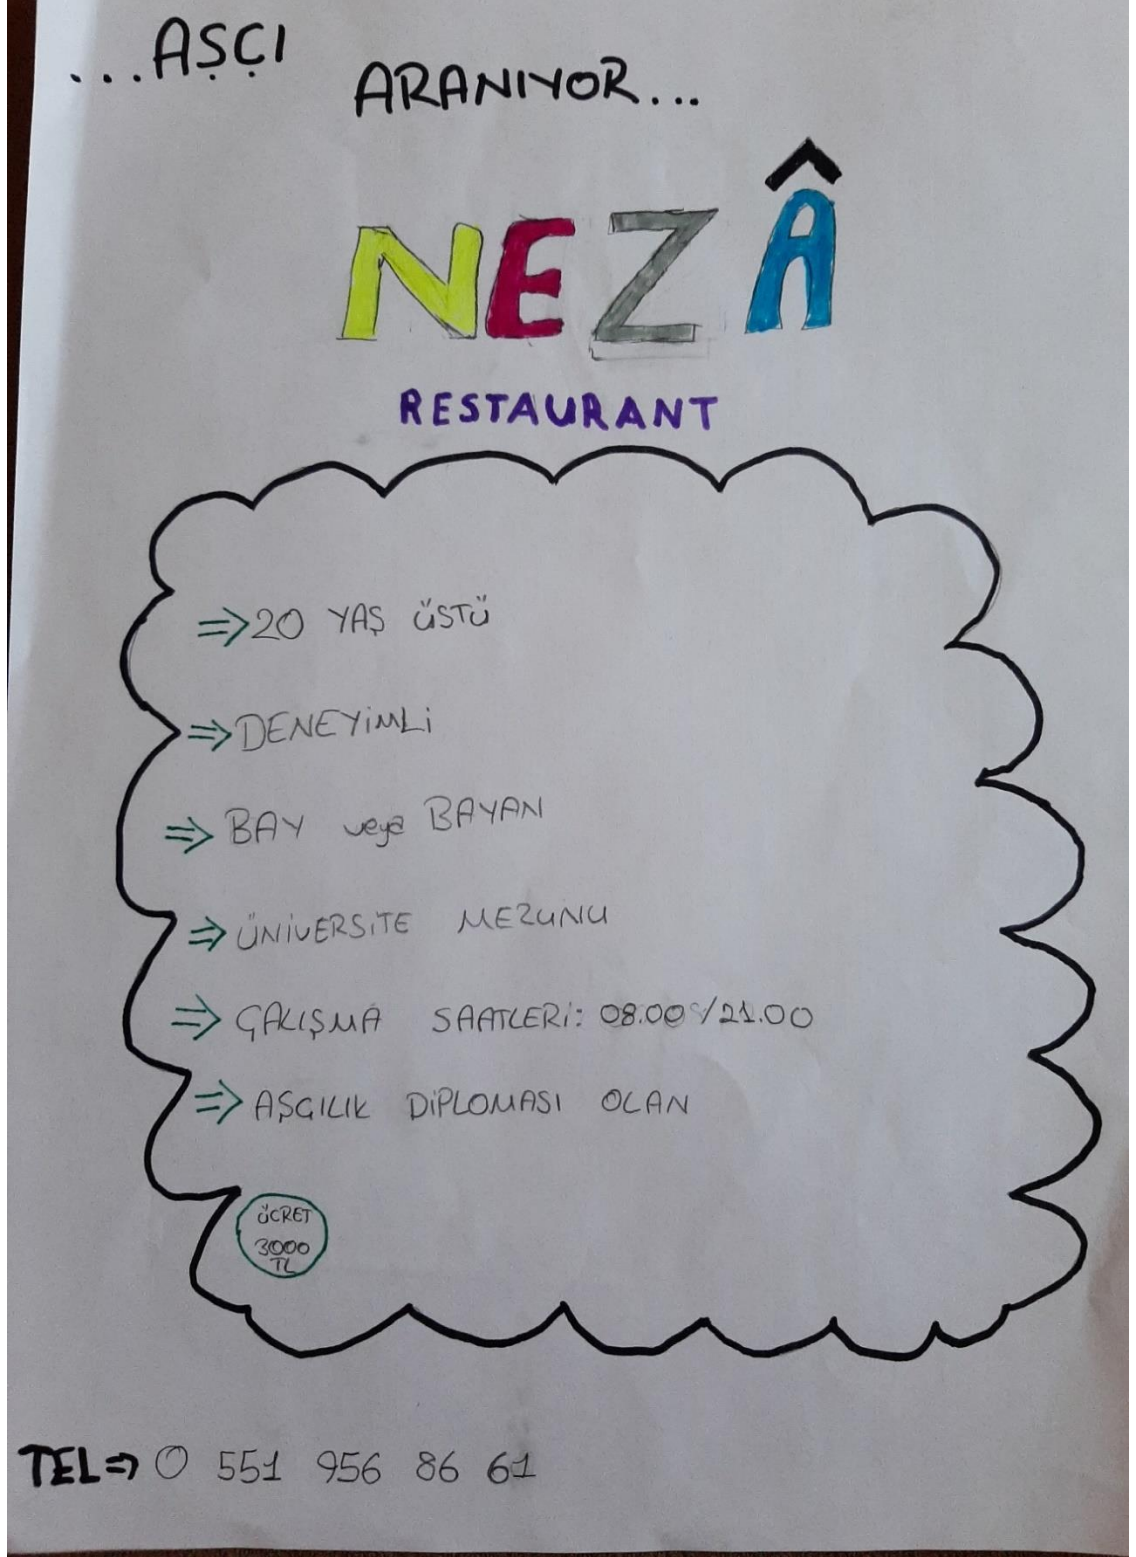 ...AŞÇI
ARANIYOR...
NEZÂ
RESTAURANT
⇒ 20 YAŞ ÜSTÜ
⇒ DENEYİMLİ
⇒ BAY veya BAYAN
⇒ ÜNİVERSİTE MEZUNU
⇒ ÇALIŞMA SAATLERİ: 08.00/21.00
⇒ AŞÇILIK DİPLOMASI OLAN
ÜCRET
3000
TL
TEL⇒ 0 551 956 86 61